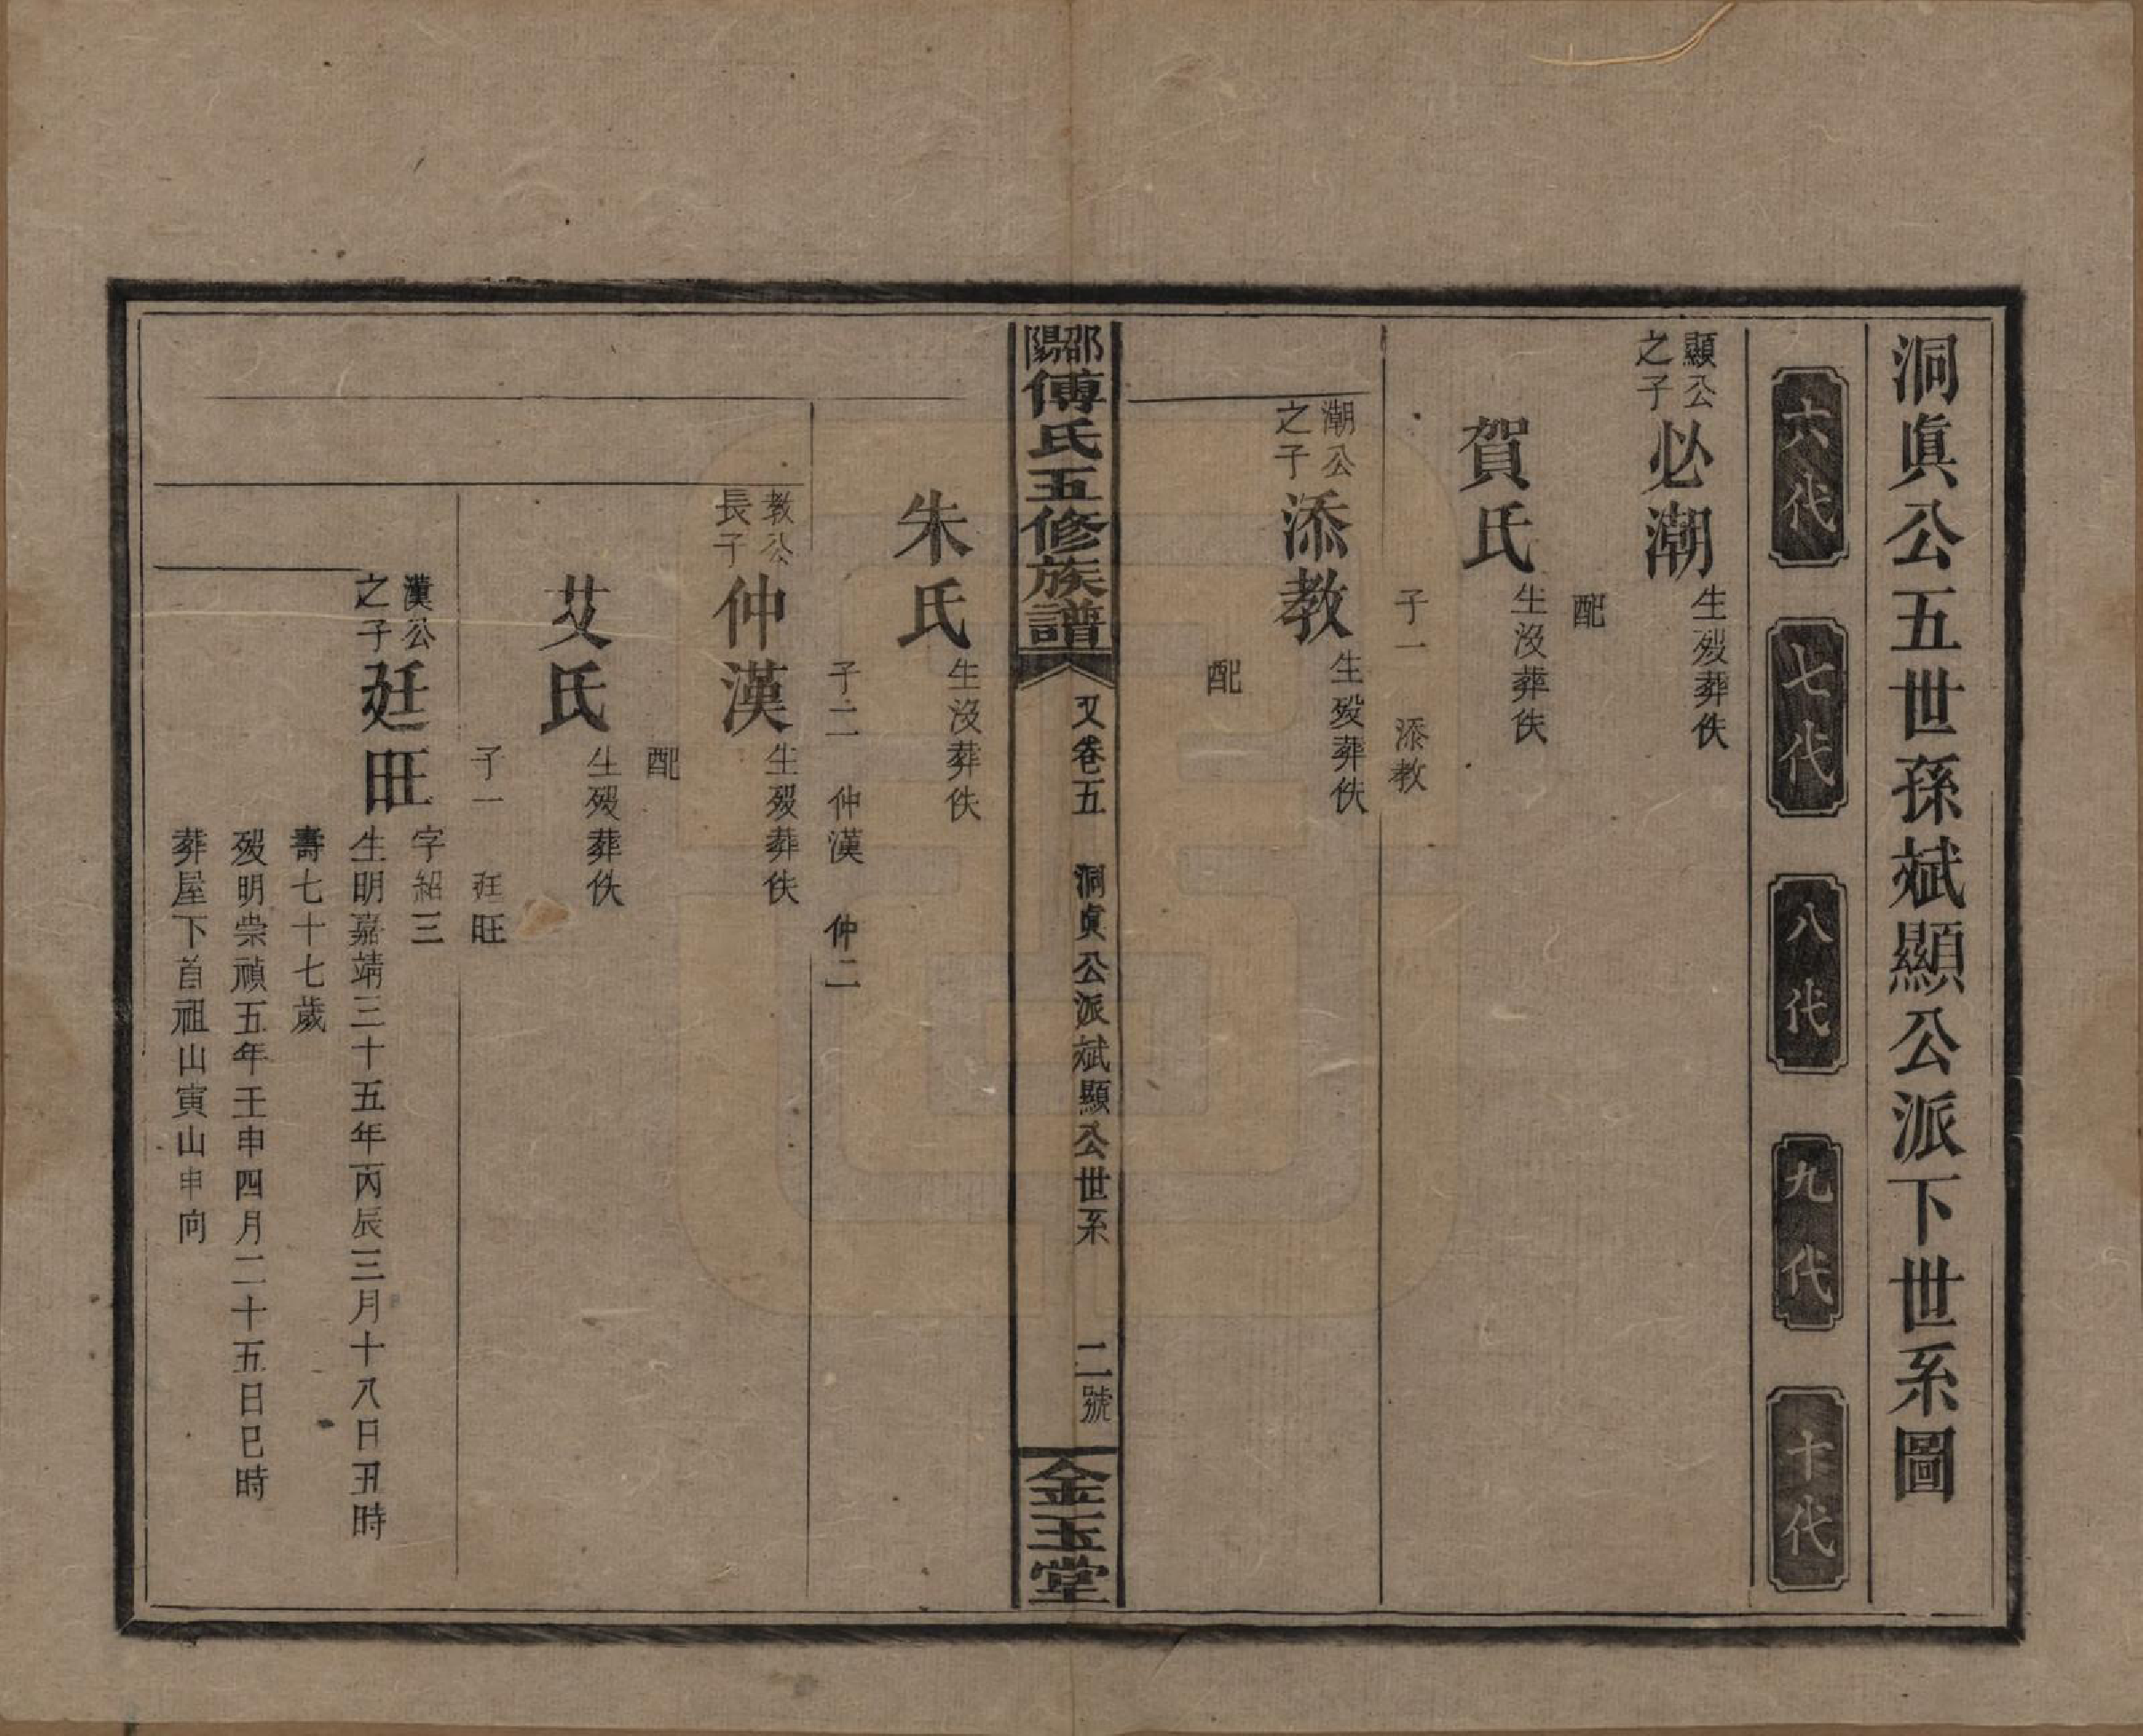 洞眞公五世孫斌顯公派下世系圖
六代
七代
八代
九代
十代
顯公
之子
必潮
生歿葬佚
配
賀氏
生沒葬佚
子一　添教
潮公
之子
添教
生歿葬佚
配
邵陽
傅氏五修族譜
又卷五　洞眞公派斌顯公世系　二號
金玉堂
朱氏
生沒葬佚
子二　仲漢　仲二
教公
長子
仲漢
生歿葬佚
配
艾氏
生歿葬佚
子一　廷旺
漢公
之子
廷旺
字紹三
生明嘉靖三十五年丙辰三月十八日丑時
壽七十七歲
歿明崇禎五年壬申四月二十五日巳時
葬屋下首祖山寅山申向